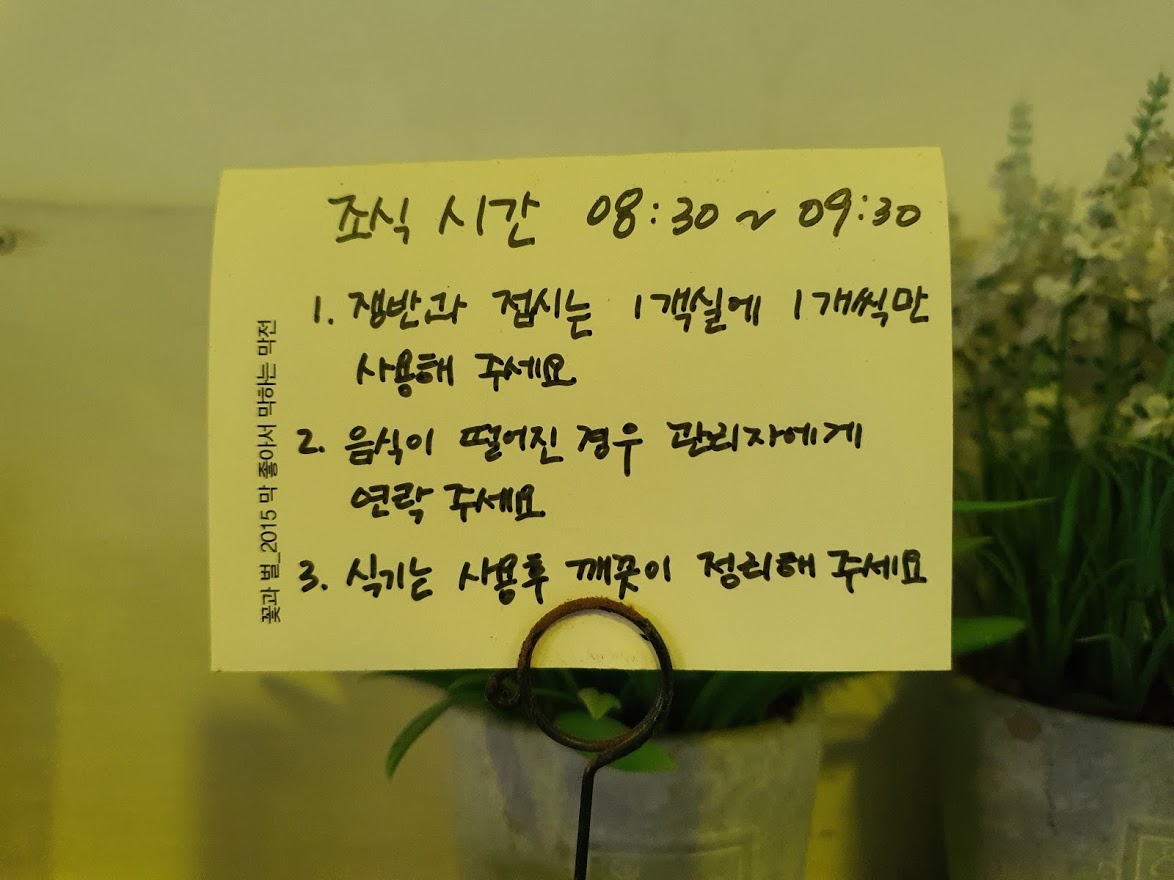 조식 시간 08:30 ~ 09:30
1. 쟁반과 접시는 1객실에 1개씩만
사용해 주세요
2. 음식이 떨어진 경우 관리자에게
연락 주세요
3. 식기는 사용후 깨끗이 정리해 주세요
꽃과 벌_2015 막 좋아서 막하는 막전